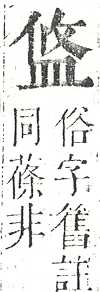 俗字舊註
同蓧非